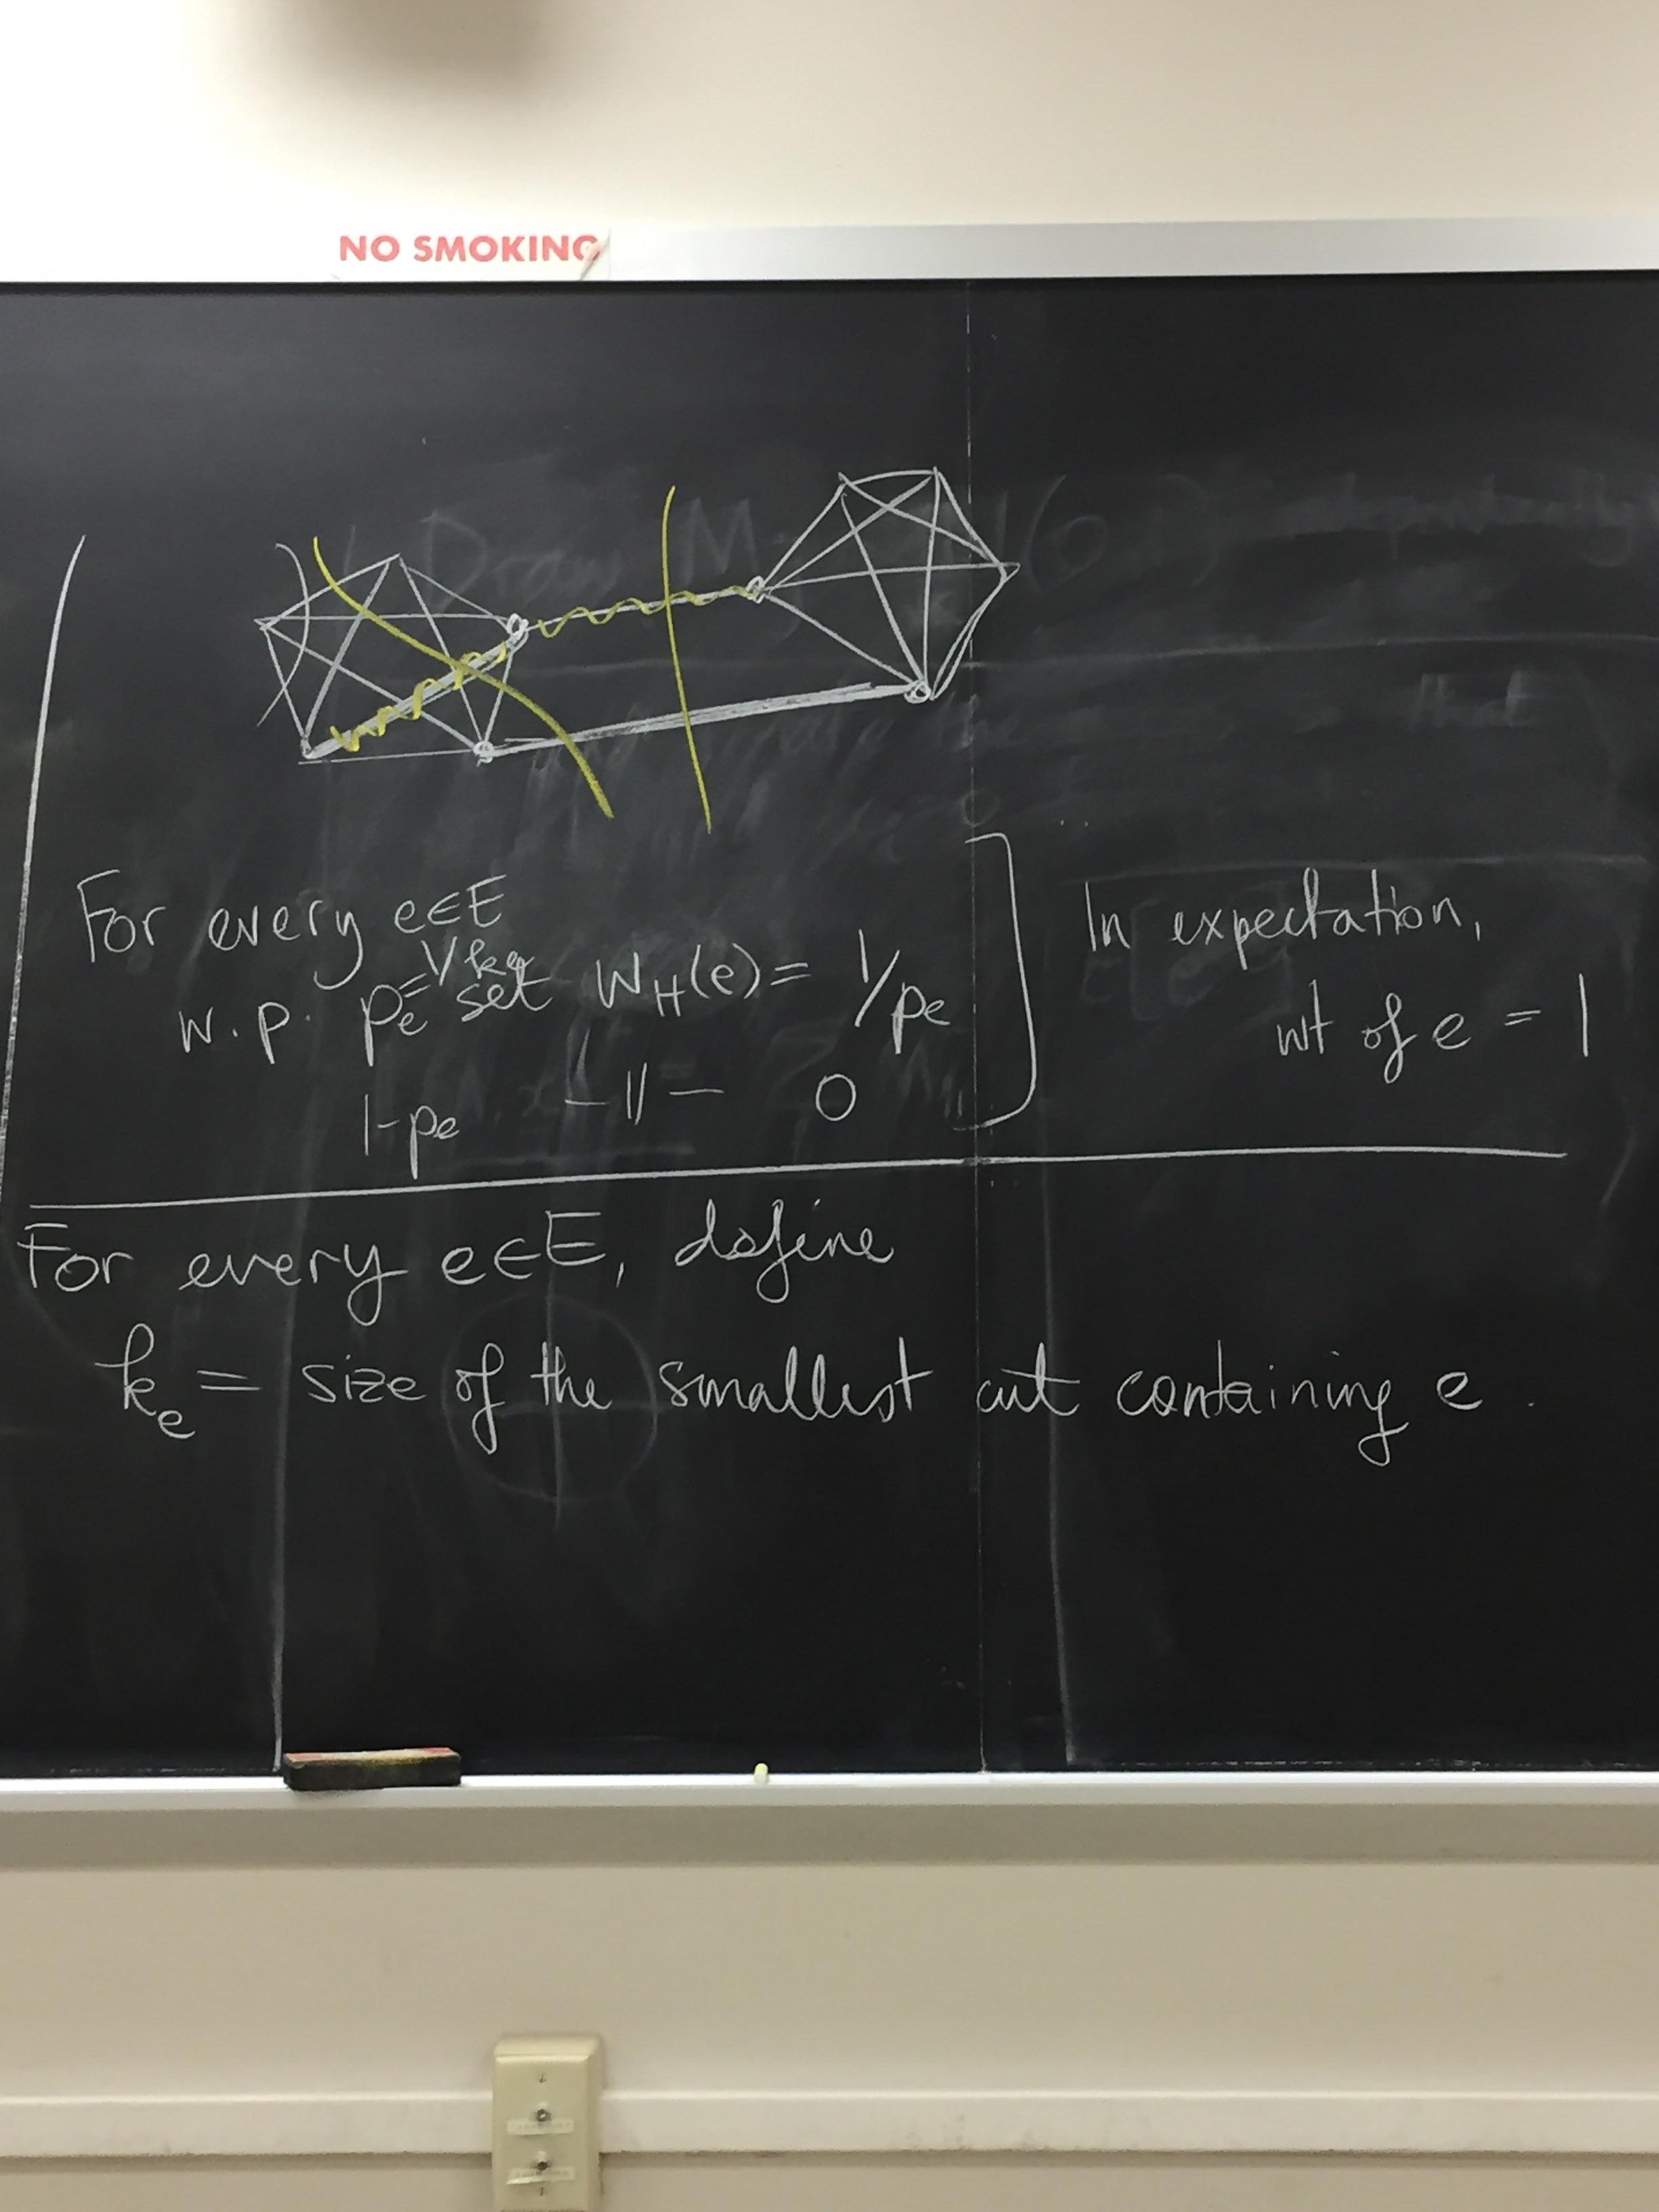 NO SMOKING
For every e∈E
w.p. pₑ = 1/kₑ set W_H(e) = 1/pₑ
1-pₑ -11- 0
In expectation,
wt of e = 1
For every e∈E, define
kₑ = size of the smallest cut containing e.